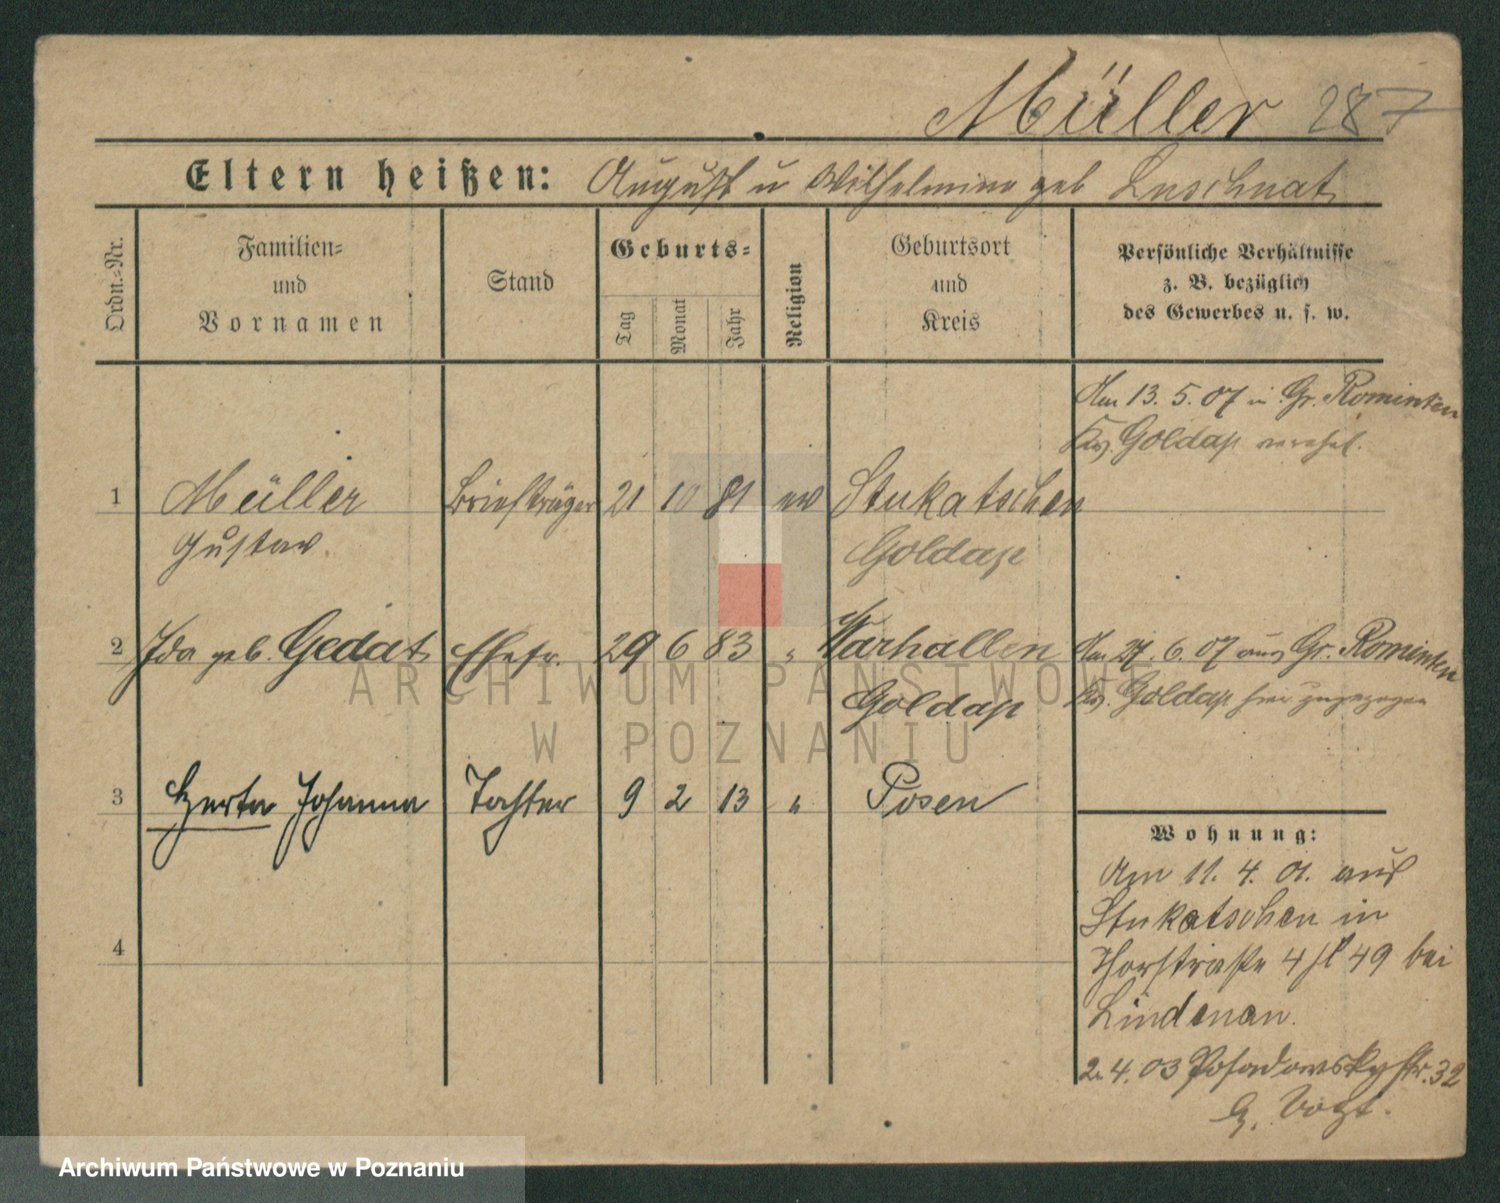 Müller 287
Eltern heißen: August u Wilhelmine geb Luschnat
Ordn.=Nr.
Familien=
und
Vornamen
Stand
Geburts=
Tag Monat Jahr
Religion
Geburtsort
und
Kreis
Persönliche Verhältnisse
z. B. bezüglich
des Gewerbes u. s. w.
Am 13. 5. 07 in Gr. Rominten
Krs. Goldap verehel.
1 Müller Briefträger 21 10 81 ev Stukatschen
Gustav. Goldap
2 Ida geb. Gedat Ehefr. 29 6 83 " Warhallen
Goldap
Am 27. 6. 07 aus Gr. Rominten
Krs. Goldap hier zugezogen
3 Herta Johanna Tochter 9 2 13 " Posen
4
Wohnung:
Am 11. 4. 01. aus
Stukatschen in
Thorstraße 4 49 bei
Lindenau.
2. 4. 03 Posadowskystr. 32
b. Vogt.
ARCHIWUM PAŃSTWOWE
W POZNANIU
Archiwum Państwowe w Poznaniu